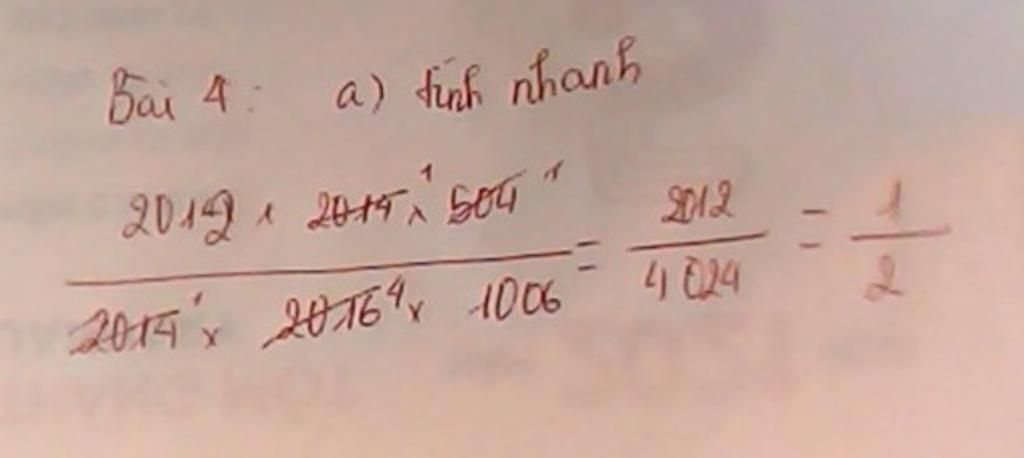 Bài 4: a) tính nhanh
2012 x 2014 1 x 504 1
2014 1 x 2016 4 x 1006
= 2012 / 4024 = 1 / 2